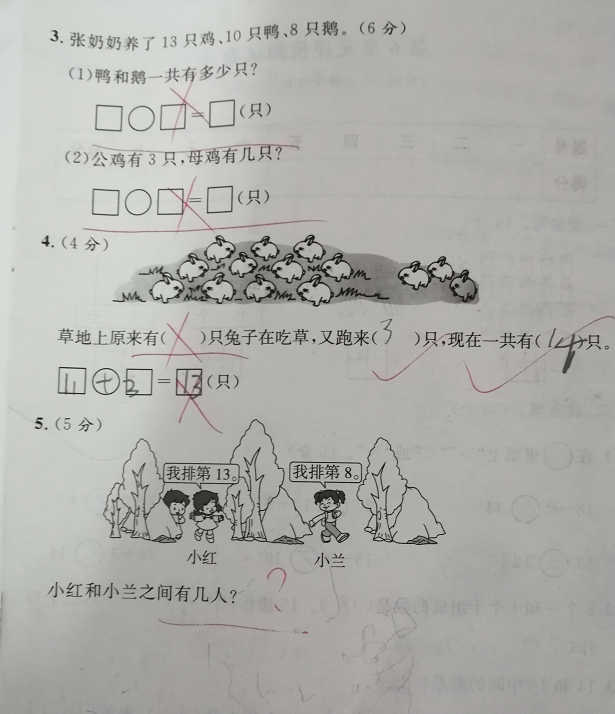 3. 张奶奶养了 13 只鸡、10 只鸭、8 只鹅。(6 分)
(1)鸭和鹅一共有多少只?
□○□=□(只)
(2)公鸡有 3 只,母鸡有几只?
□○□=□(只)
4. (4 分)
草地上原来有( )只兔子在吃草,又跑来(3)只,现在一共有(14)只。
11+3=13(只)
5. (5 分)
我排第 13。 我排第 8。
小红 小兰
小红和小兰之间有几人?
?